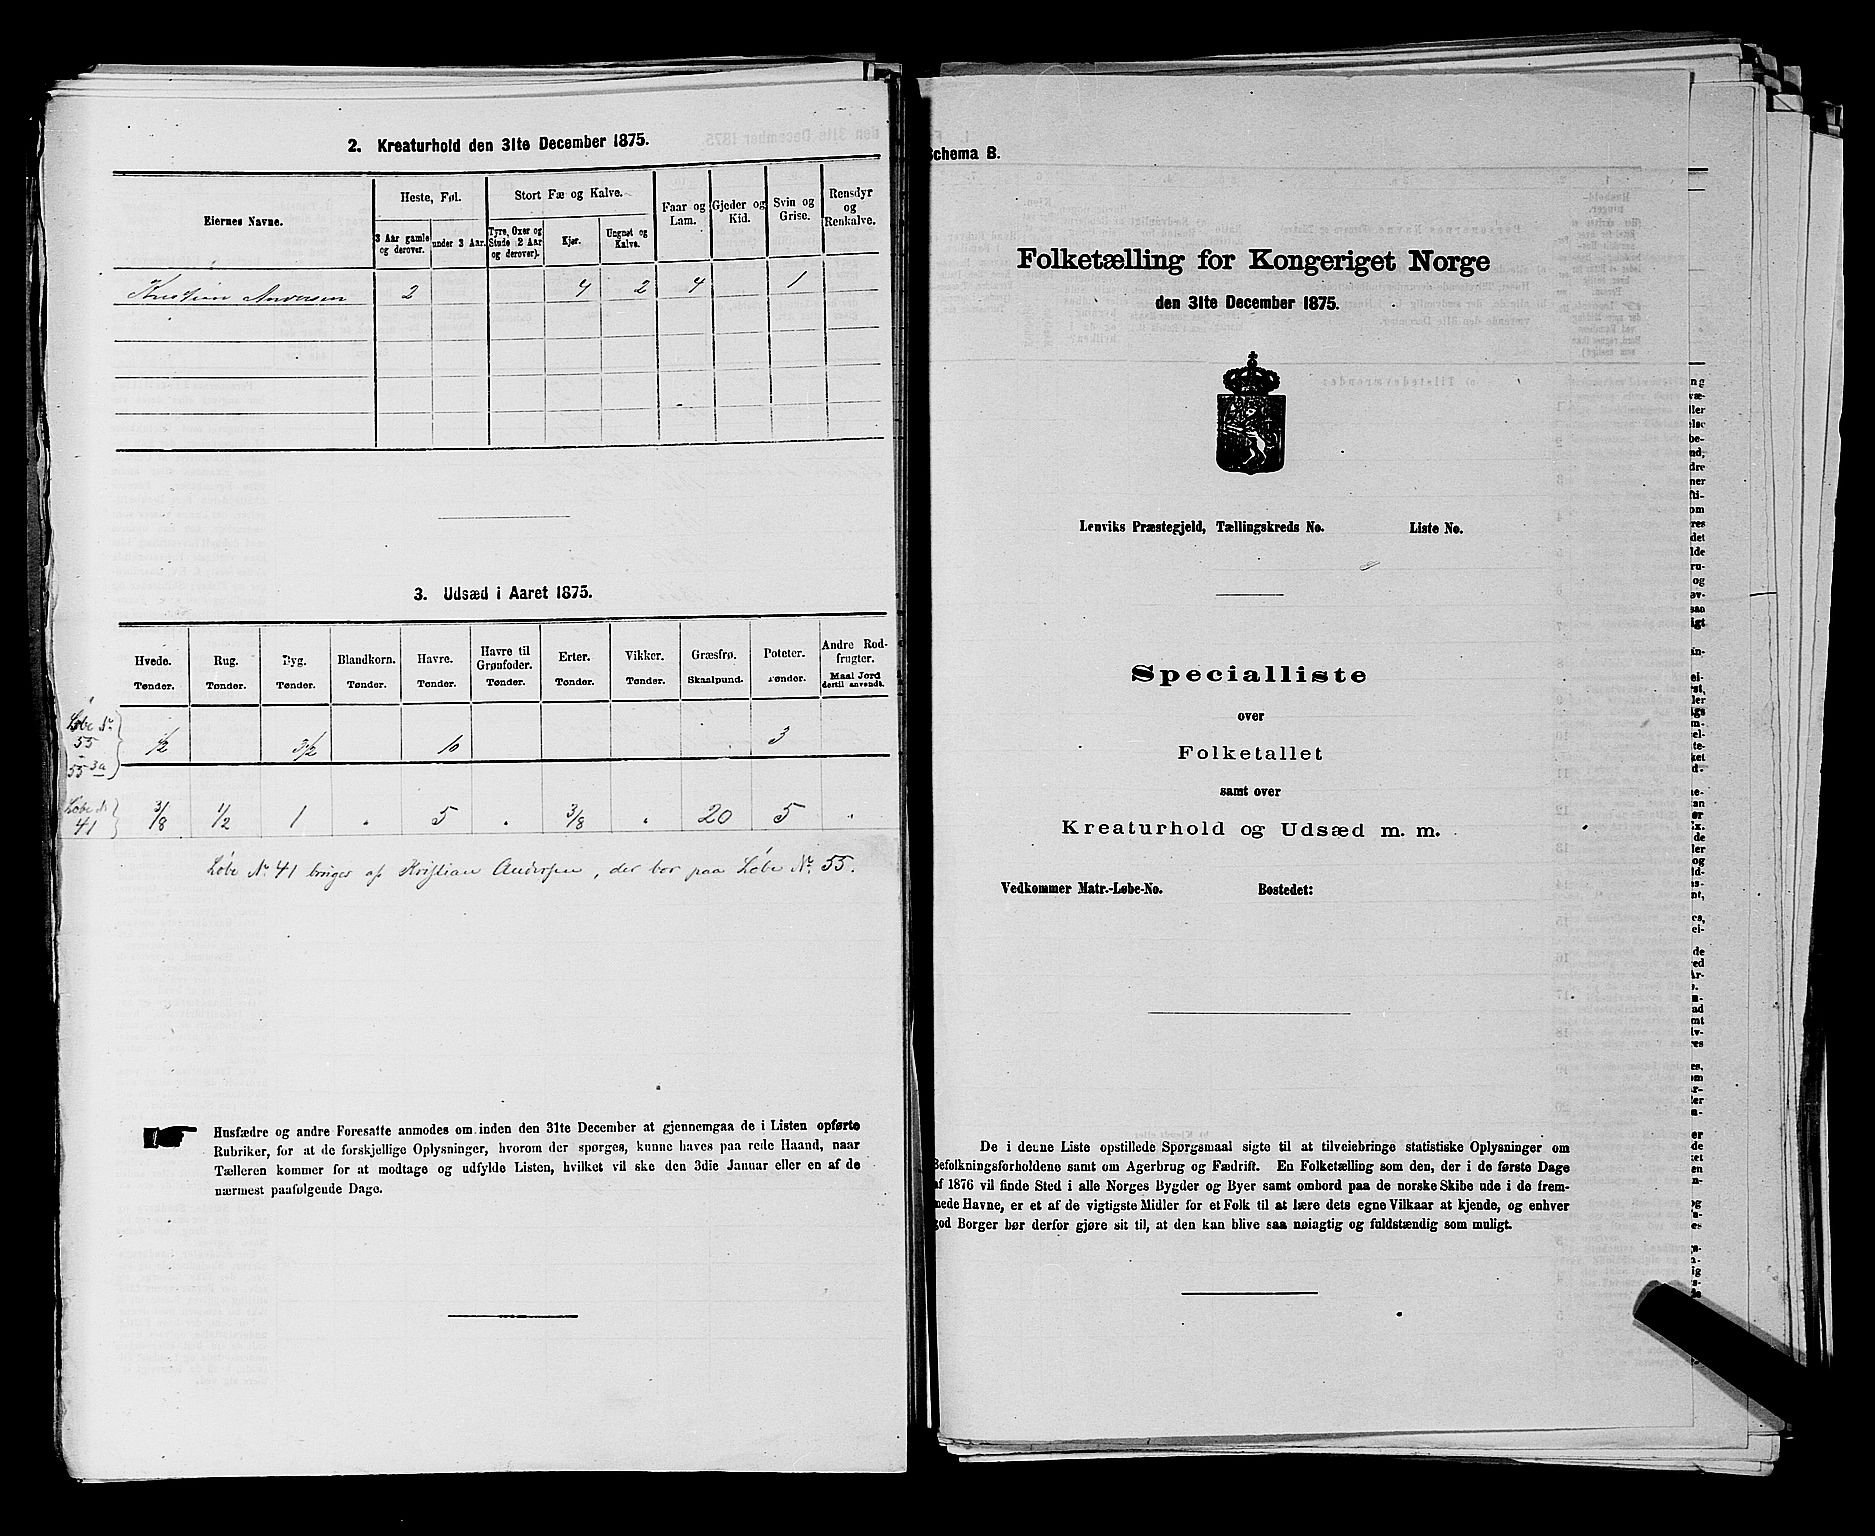 2. Kreaturhold den 31te December 1875.
Eiernes Navne.
Heste, Føl.
Stort Fæ og Kalve.
Faar og Lam.
Gjeder og Kid.
Svin og Grise.
Rensdyr og Renkalve.
3 Aar gamle og derover.
under 3 Aar.
Tyre, Oxer og Stude (2 Aar og derover).
Kjør.
Ungnøt og Kalve.
Kristian Andersen 2 4 2 4 1
3. Udsæd i Aaret 1875.
Hvede. Rug. Byg. Blandkorn. Havre. Havre til Grønfoder. Erter. Vikker. Græsfrø. Poteter. Andre Rodfrugter.
Tønder. Tønder. Tønder. Tønder. Tønder. Tønder. Tønder. Tønder. Skaalpund. Tønder. Maal Jord dertil anvendt.
Løbe Nr 55 55 3a 1/2 3 1/2 10 3
Løbe Nr 41 3/8 1/2 1 " 5 " 3/8 " 20 5 "
Løbe Nr. 41 bruges af Kristian Andersen, der bor paa Løbe Nr. 55.
Husfædre og andre Foresatte anmodes om inden den 31te December at gjennemgaa de i Listen opførte
Rubriker, for at de forskjellige Oplysninger, hvorom der spørges, kunne haves paa rede Haand, naar
Tælleren kommer for at modtage og udfylde Listen, hvilket vil ske den 3die Januar eller en af de
nærmest paafølgende Dage.
Schema B.
Folketælling for Kongeriget Norge
den 31te December 1875.
Lenviks Præstegjeld, Tællingskreds No. Liste No.
Specialliste
over
Folketallet
samt over
Kreaturhold og Udsæd m. m.
Vedkommer Matr.-Løbe-No. Bostedet:
De i denne Liste opstillede Spørgsmaal sigte til at tilveiebringe statistiske Oplysninger om
Befolkningsforholdene samt om Agerbrug og Fædrift. En Folketælling som den, der i de første Dage
af 1876 vil finde Sted i alle Norges Bygder og Byer samt ombord paa de norske Skibe ude i de frem-
mede Havne, er et af de vigtigste Midler for et Folk til at lære dets egne Vilkaar at kjende, og enhver
god Borger bør derfor gjøre sit til, at den kan blive saa nøiagtig og fuldstændig som muligt.